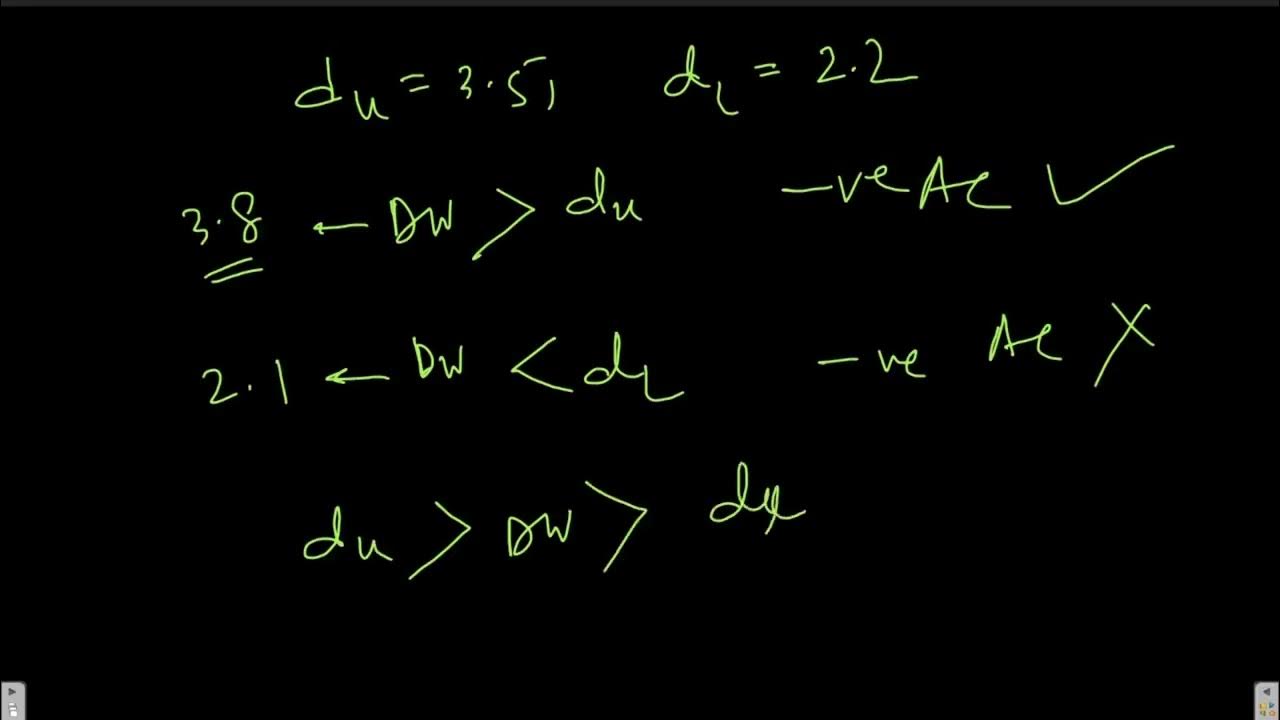 du = 3.5, dL = 2.2
3.8 ← DW > du -ve AC ✓
2.1 ← DW < dL -ve AC X
du > DW > dL